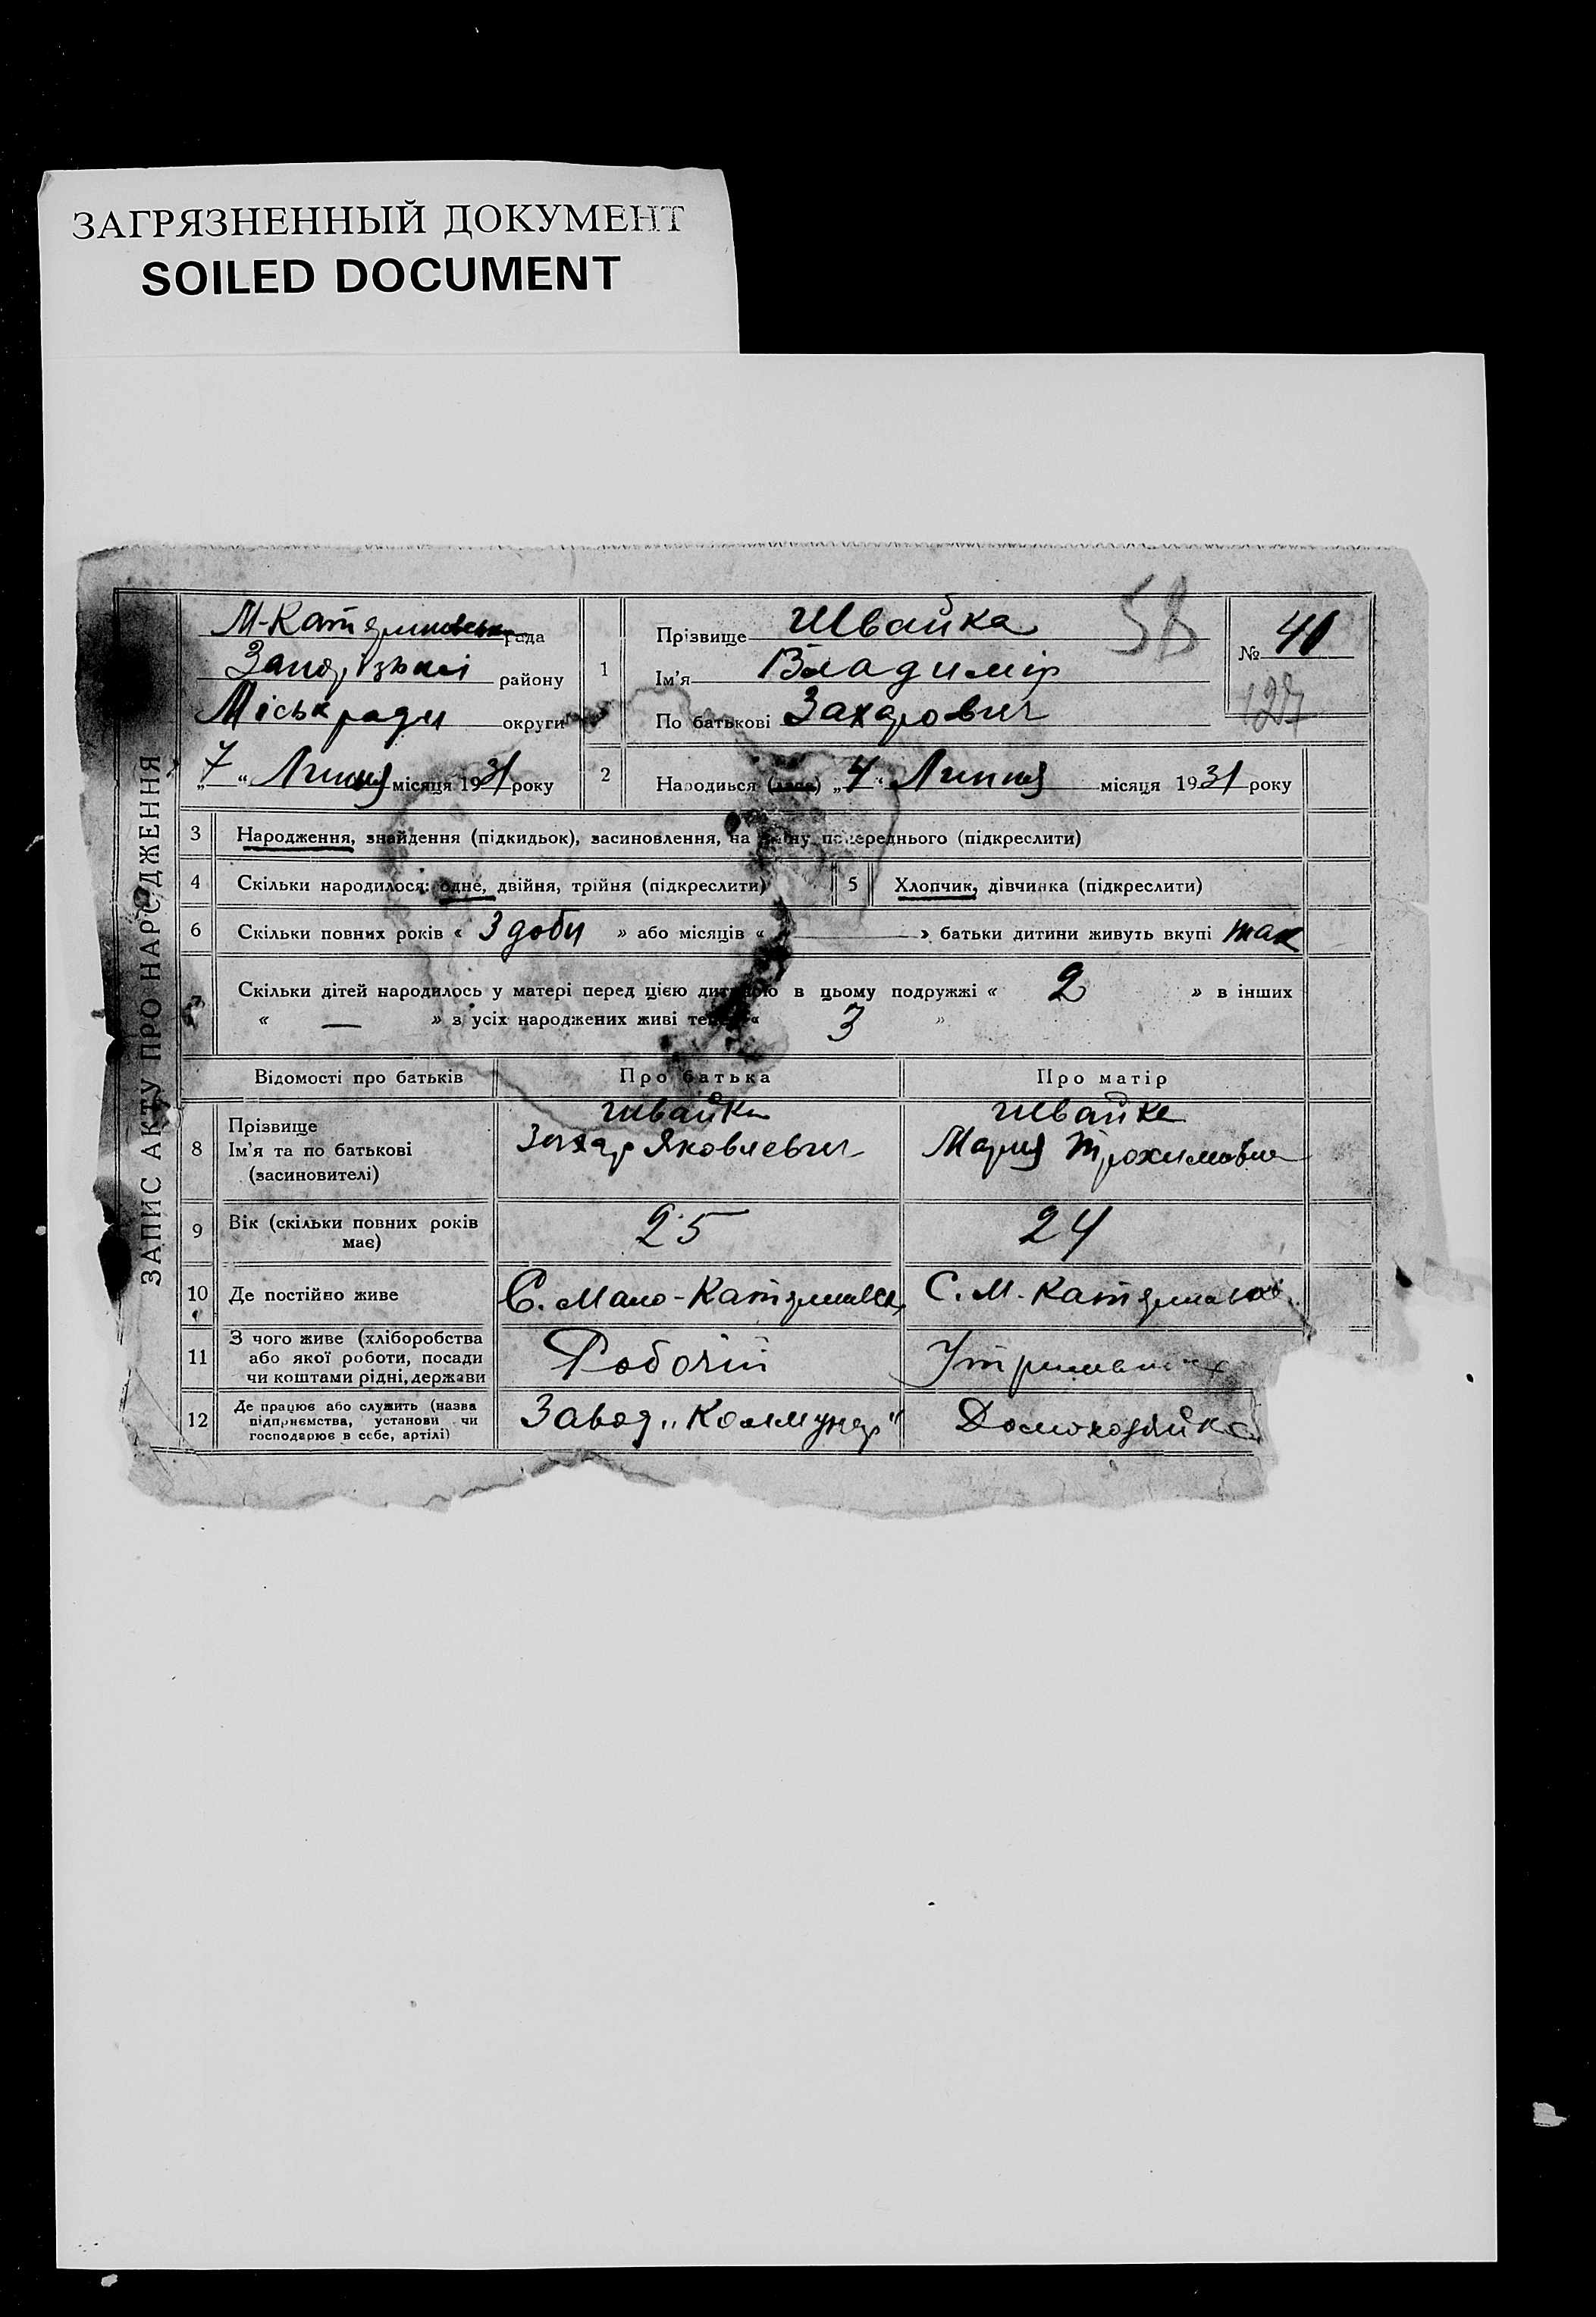 ЗАГРЯЗНЕННЫЙ ДОКУМЕНТ
SOILED DOCUMENT
ЗАПИС АКТУ ПРО НАРОДЖЕННЯ
М-Катериновська рада
Запорізької району
Міськради округи
„ 7 “ Липня місяця 1931 року
1
Прізвище Швайка
Ім’я Владимір
По батькові Захарович
58
№ 40
127
2
Народився (лася) „ 4 “ Липня місяця 1931 року
3 Народження, знайдення (підкидьок), засиновлення, на зміну попереднього (підкреслити)
4 Скільки народилося: одне, двійня, трійня (підкреслити) 5 Хлопчик, дівчинка (підкреслити)
6 Скільки повних років « 3 доби » або місяців « — » батьки дитини живуть вкупі так
7 Скільки дітей народилось у матері перед цією дитиною в цьому подружжі « 2 » в інших
« — » з усіх народжених живі тепер « 3 »
Відомості про батьків Про батька Про матір
8 Прізвище
Ім’я та по батькові
(засиновителі)
Швайка
Захар Яковлевич
Швайка
Мария Трохимовна
9 Вік (скільки повних років
має)
25 24
10 Де постійно живе С. Мало-Катеринівка С. М-Катеринівка
11 З чого живе (хліборобства
або якої роботи, посади
чи коштами рідні, держави
Робочій
12 Де працює або служить (назва
підприємства, установи чи
господарює в себе, артілі)
Завод „Коммунар“ Домохозяйка